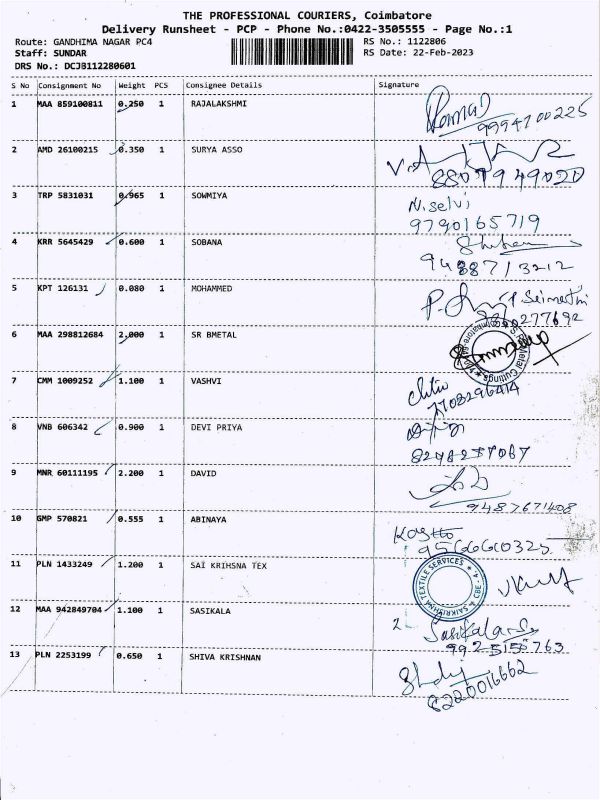 THE PROFESSIONAL COURIERS, Coimbatore
Delivery Runsheet - PCP - Phone No.:0422-3505555 - Page No.:1
Route: GANDHIMA NAGAR PC4
RS No.: 1122806
Staff: SUNDAR
RS Date: 22-Feb-2023
DRS No.: DCJB112280601
S No Consignment No Weight PCS Consignee Details Signature
1 MAA 859100811 0.250 1 RAJALAKSHMI
9994700225
2 AMD 26100215 0.350 1 SURYA ASSO
8807949020
3 TRP 5831031 0.965 1 SOWMIYA N.selvi
9790165719
4 KRR 5645429 0.600 1 SOBANA
9488713212
5 KPT 126131 0.080 1 MOHAMMED
6 MAA 298812684 2.000 1 SR BMETAL
7 CMM 1009252 1.100 1 VASHVI
7708296414
8 VNB 606342 0.900 1 DEVI PRIYA
8248237067
9 MNR 60111195 2.200 1 DAVID
9487671408
10 GMP 570821 0.555 1 ABINAYA
9566660325
11 PLN 1433249 1.200 1 SAI KRIHSNA TEX SAIKRISHNA TEXTILE SERVICES CBE - 4.
12 MAA 942849704 1.100 1 SASIKALA Sasikala
9925155763
13 PLN 2253199 0.650 1 SHIVA KRISHNAN
6220016662